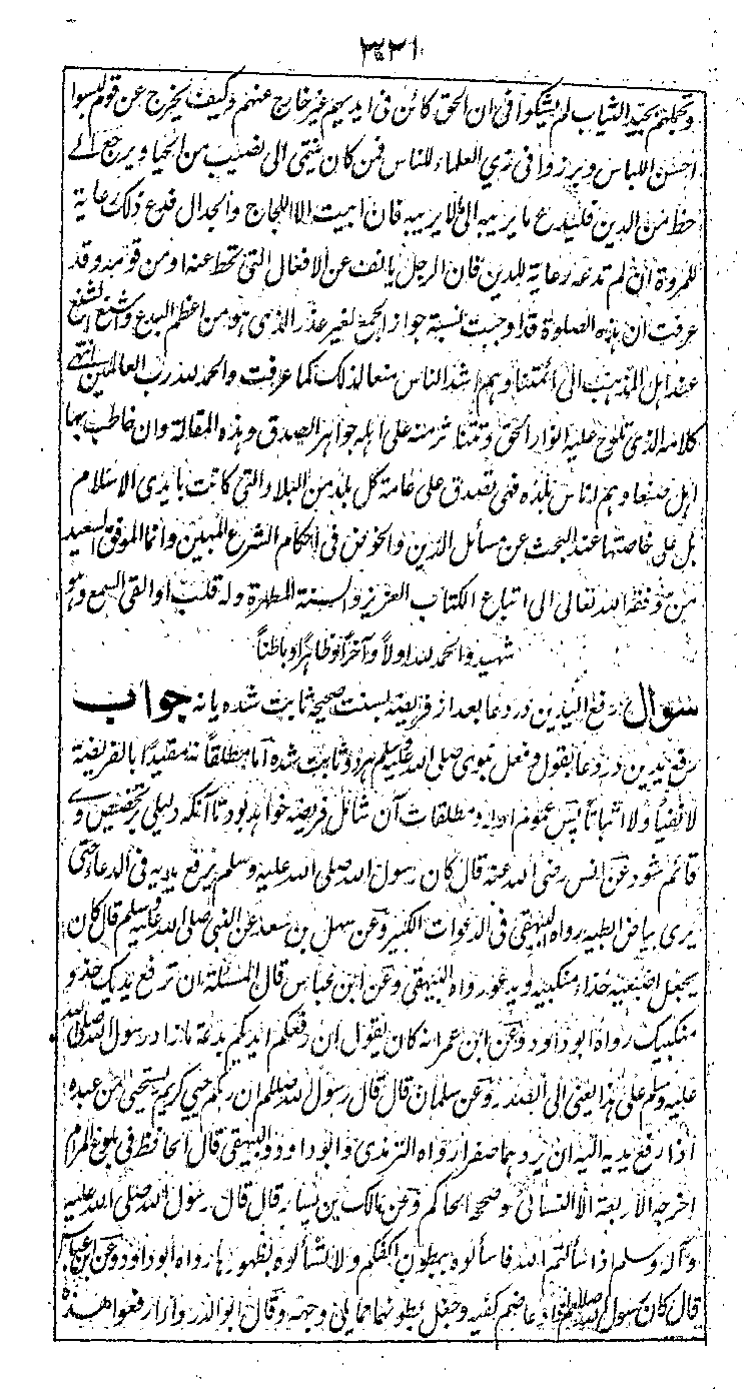 ٣٣١
وتجملهم بجيد الثياب لم يشكوا فى ان الحق كائن فى ايديهم غير خارج عنهم وكيف يخرج عن قوم لبسوا
احسن اللباس وبرزوا فى زي العلماء للناس فمن كان ينتمى الى نصيب من الحيا ويرجع الے
حظ من الدين فليدع ما يريبه الى ما لا يريبه فان ابيت الا اللجاج والجدال فدع ذلك رعاية
للمروة ان لم تدعه رعاية للدين فان الرجل يانف عن الافعال التى تحط عنه ومن قومه وقد
عرفت ان هذه الصلوة قد اوجبت نسبة جواز الجمع لغير عذر الذى هو من اعظم البدع واشنع الشنع
عند اهل المذهب الى ائمتنا وهم اشد الناس منعا لذلك كما عرفت والحمد لله رب العالمين انتهے
كلامه الذى تلوح عليه انوار الحق و من اهله جواهر الصدق وهذه المقالة وان خاطب بها
اهل صنعا وهم اناس بلده فهى تصدق على عامة كل بلد من البلاد التى كانت بايدى الاسلام
بل على خاصتها عند البحث عن مسائل الدين والخوض فى احكام الشرع المبين وانما الموفق السعيد
من وفقه الله تعالى الى اتباع الكتاب العزيز والسنة المطهرة وله قلب او القى السمع وهو
شهيد والحمد لله اولاً وآخراً وظاهراً وباطناً
سوال رفع اليدين در دعا بعد از فريضه بسنت صحيحه ثابت شده يا نه جواب
رفع يدين در دعا بقول وفعل نبوى صلى الله عليه وسلم هردو ثابت شده اما مطلقاً نه مقيداً بالفريضة
لا نفياً ولا اثباتاً پس عموم ادله ومطلقات آن شامل فريضه خواهد بود تا آنكه دليلى بر تخصيص وے
قائم شود عن انس رضى الله عنه قال كان رسول الله صلى الله عليه وسلم يرفع يديه فى الدعاء حتى
يرى بياض ابطيه رواه البيهقى فى الدعوات الكبير وعن سهل بن سعد عن النبى صلى الله عليه وسلم قال كان
يجعل اصبعيه حذاء منكبيه ويدعو رواه البيهقى وعن ابن عباس قال المسئلة ان ترفع يديك حذو
منكبيك رواه ابو داود وعن ابن عمر انه كان يقول ان رفعكم ايديكم بدعة ما زاد رسول الله صلى الله
عليه وسلم على هذا يعنى الى الصدر وعن سلمان قال قال رسول الله صلعم ان ربكم حيى كريم يستحيى من عبده
اذا رفع يديه اليه ان يردهما صفرا رواه الترمذى وابو داود والبيهقى قال الحافظ فى بلوغ المرام
اخرجه الاربعة الا النسائى وصححه الحاكم وعن مالك بن يسار قال قال رسول الله صلى الله عليه
وآله وسلم اذا سألتم الله فاسألوه ببطون اكفكم ولا تسألوه بظهورها رواه ابو داود وعن ابن عباس
قال كان رسول الله صلعم اذا دعا ضم كفيه وجعل بطونهما مما يلى وجهه وقال ابو الدرداء ارفعوا هذه